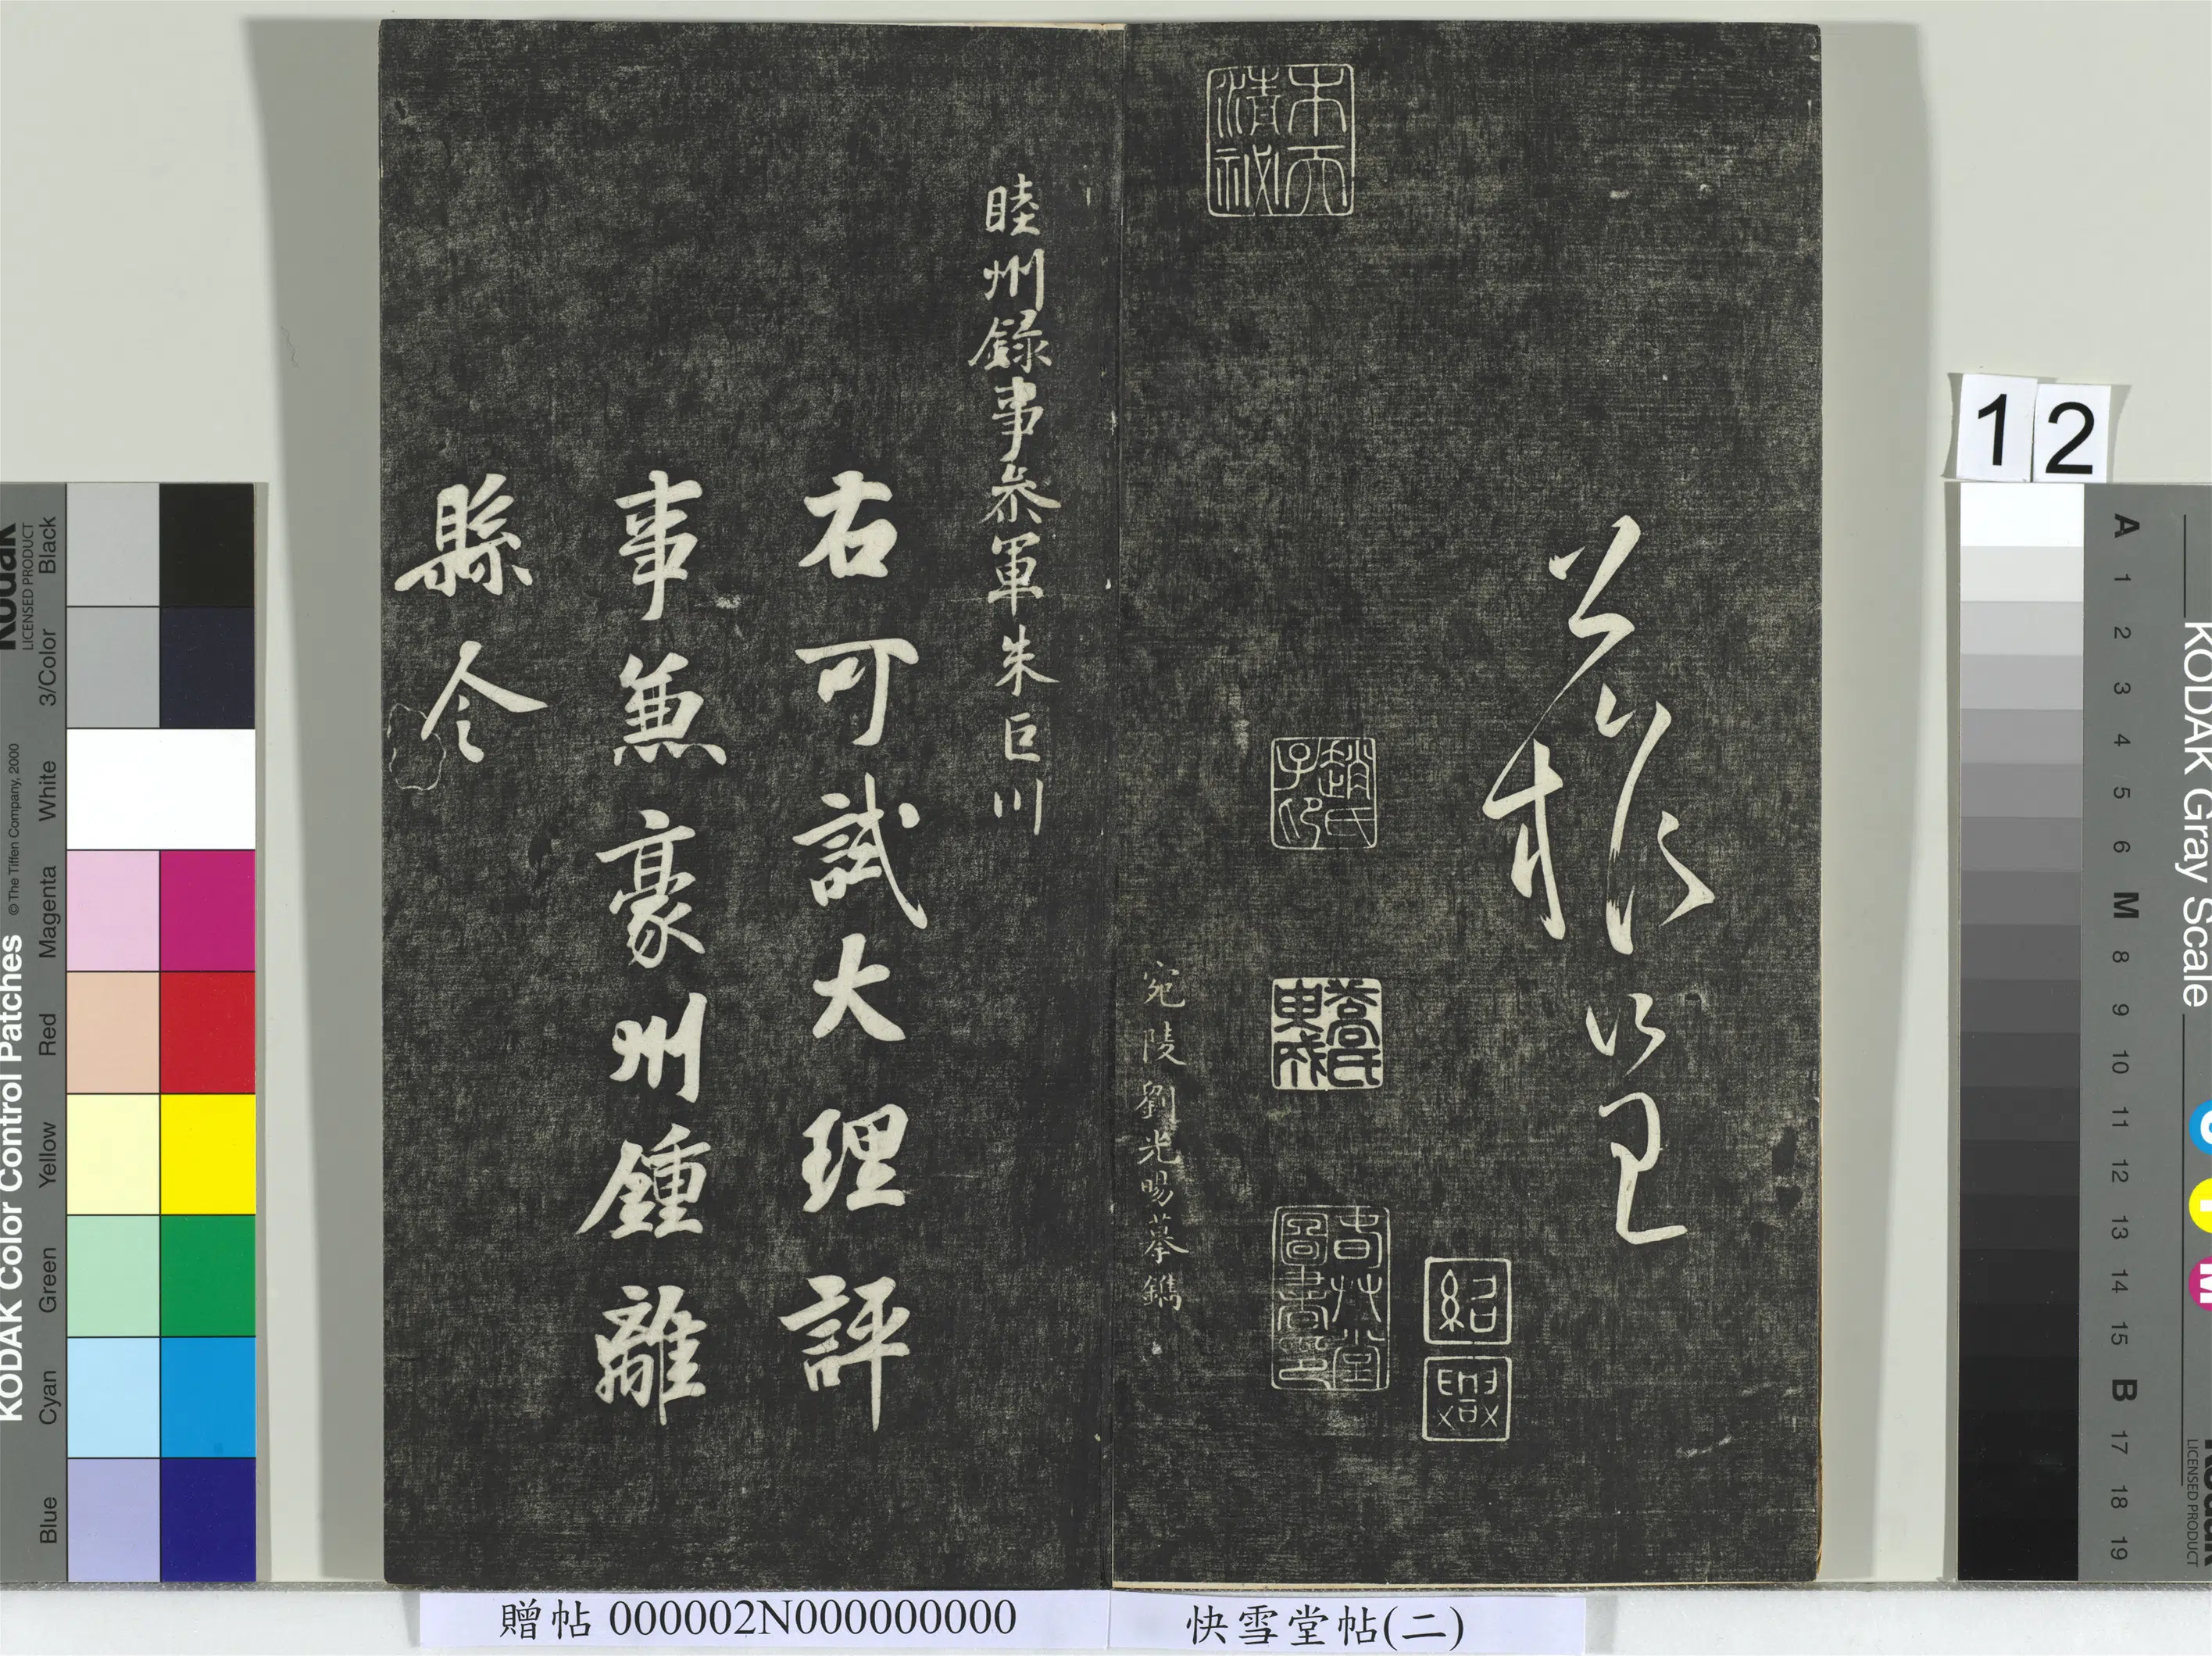 睦州録事參軍朱巨川
右可試大理評
事兼豪州鍾離
縣令
宛陵劉光暘摹鐫
紹興
趙氏子印
12
贈帖 000002N000000000
快雪堂帖(二)
KODAK Color Control Patches
© The Tiffen Company, 2000
Kodak
LICENSED PRODUCT
Blue Cyan Green Yellow Red Magenta White 3/Color Black
KODAK Gray Scale
A 1 2 3 4 5 6 M 8 9 10 11 12 13 14 15 B 17 18 19
Kodak
LICENSED PRODUCT
C Y M